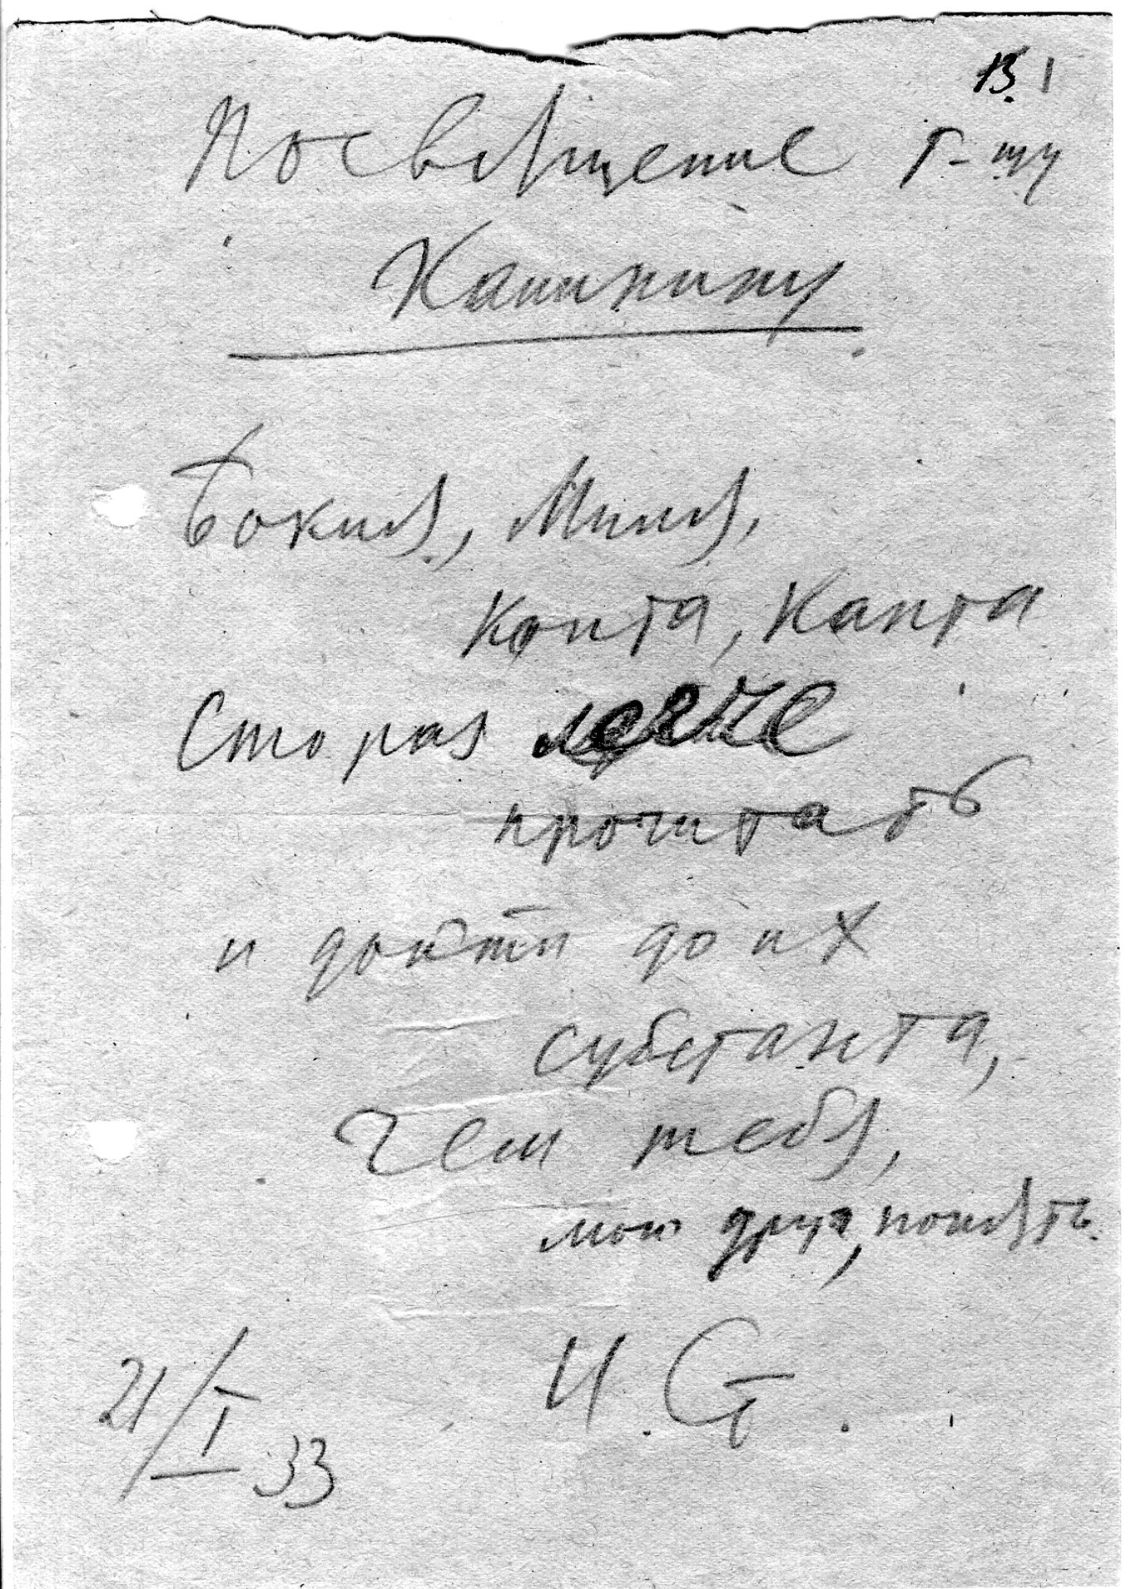 13. 1
Посвящение т-щу
Калинину
Бокля, Милля,
Конта, Канта
Сто раз легче
прочитать
и дойти до их
субстанта,
Чем тебя,
мой друг, понять.
И. Ст.
21/I 33